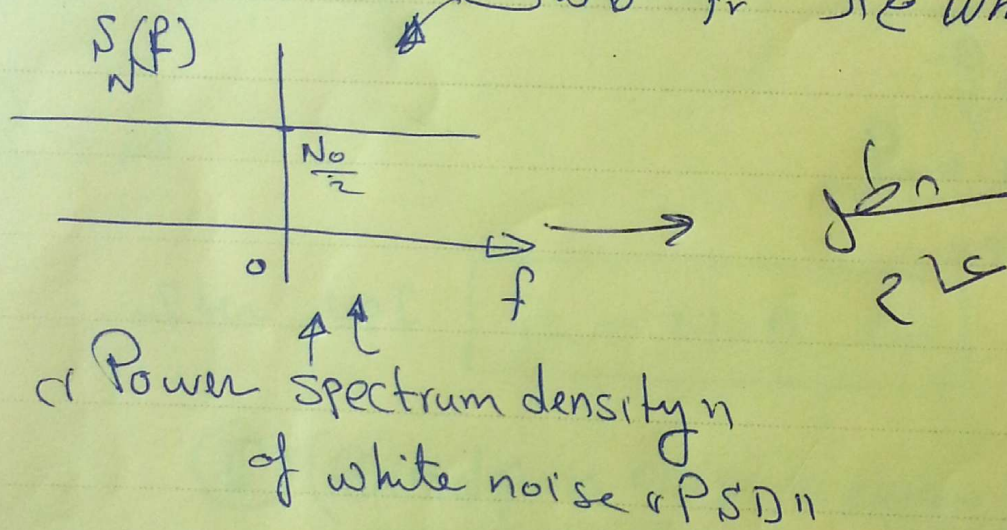 S_N(f)
N₀/2
0
f
"Power spectrum density"
of white noise "PSD"